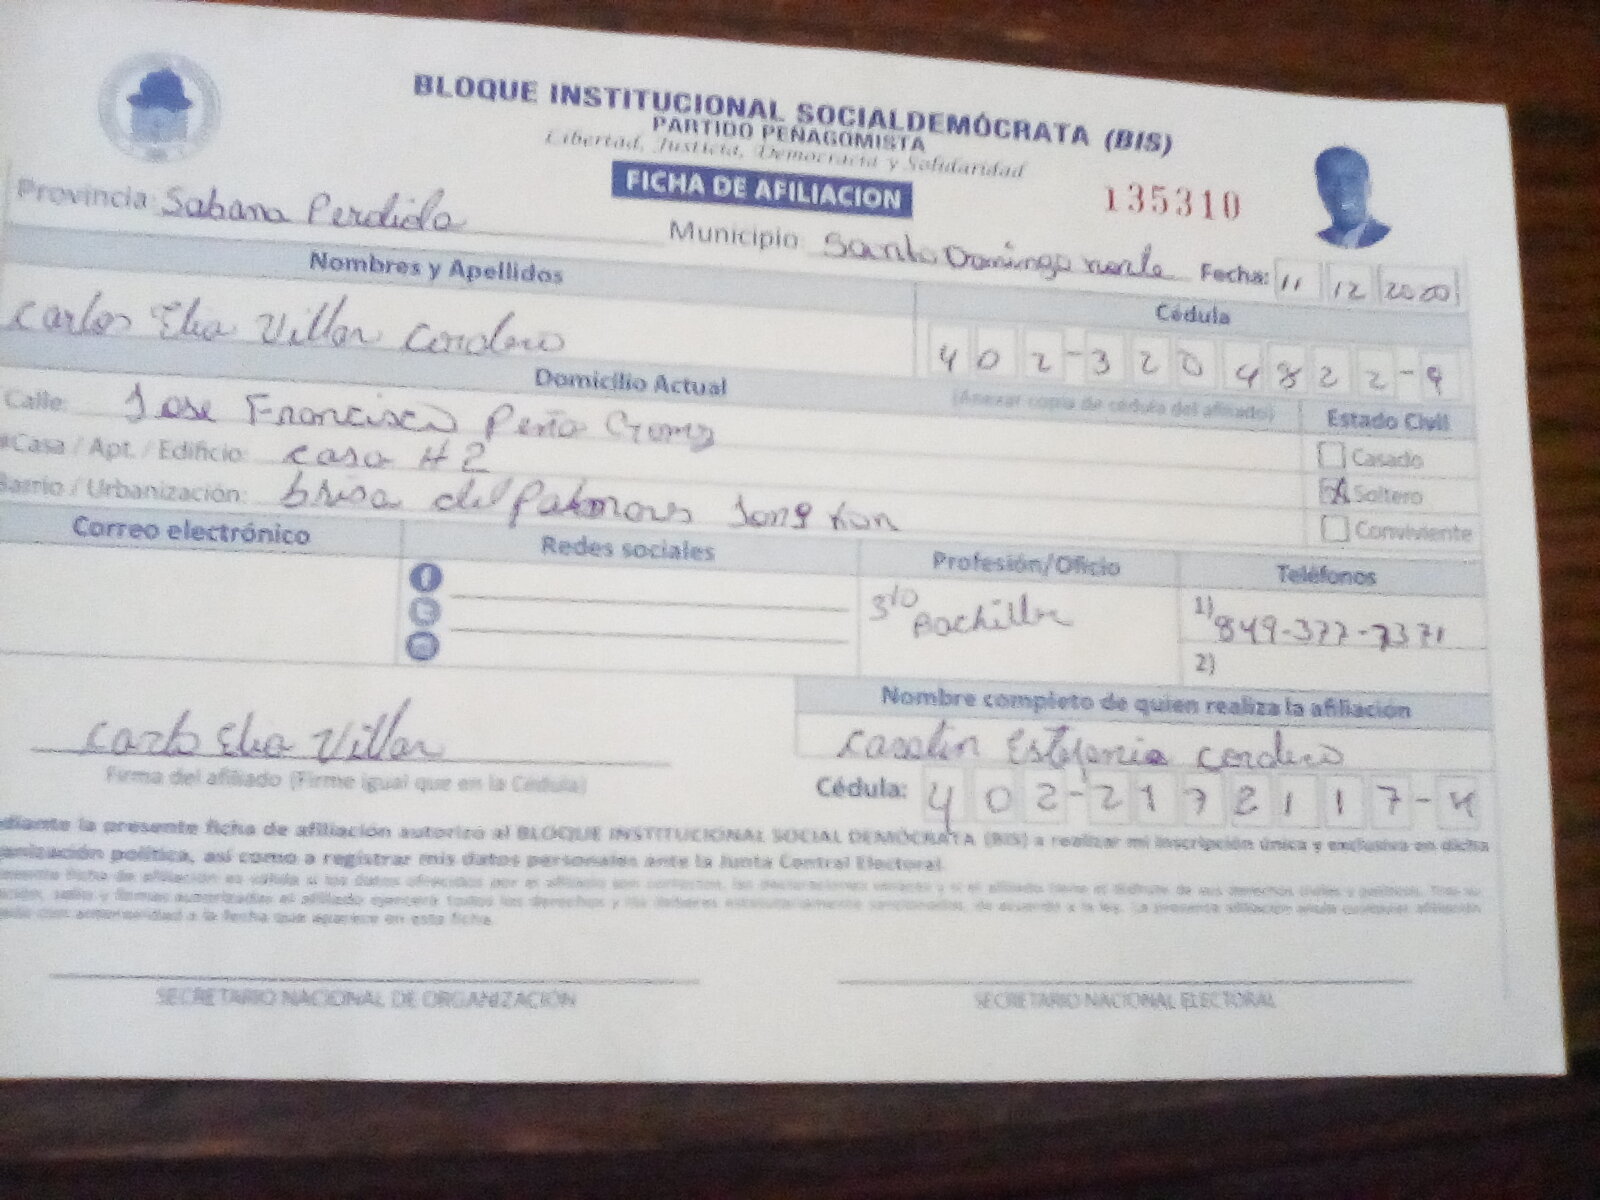 BLOQUE INSTITUCIONAL SOCIALDEMÓCRATA (BIS)
PARTIDO PEÑAGOMISTA
Libertad, Justicia, Democracia y Solidaridad
FICHA DE AFILIACION
135310
Provincia: Sabana Perdida
Municipio: Santo Domingo norte Fecha: 11 12 2020
Nombres y Apellidos
Cédula
Carlos Elia Villar Cordero
402-3204822-9
Domicilio Actual
(Anexar copia de cédula del afiliado)
Estado Civil
Calle: Jose Francisco Peña Gomez
Casado
#Casa / Apt. / Edificio: casa #2
X Soltero
Barrio / Urbanización: brisa del Palmar
Conviviente
Correo electrónico
Redes sociales
Profesión/Oficio
Teléfonos
3ro Bachiller
1) 849-377-7371
2)
Nombre completo de quien realiza la afiliación
Carlo Elia Villar
Estefania Cordero
Firma del afiliado (Firme igual que en la Cédula)
Cédula: 402-2172117-4
diante la presente ficha de afiliación autorizo al BLOQUE INSTITUCIONAL SOCIAL DEMÓCRATA (BIS) a realizar mi inscripción única y exclusiva en dicha
anización política, así como a registrar mis datos personales ante la Junta Central Electoral.
SECRETARIO NACIONAL DE ORGANIZACIÓN
SECRETARIO NACIONAL ELECTORAL